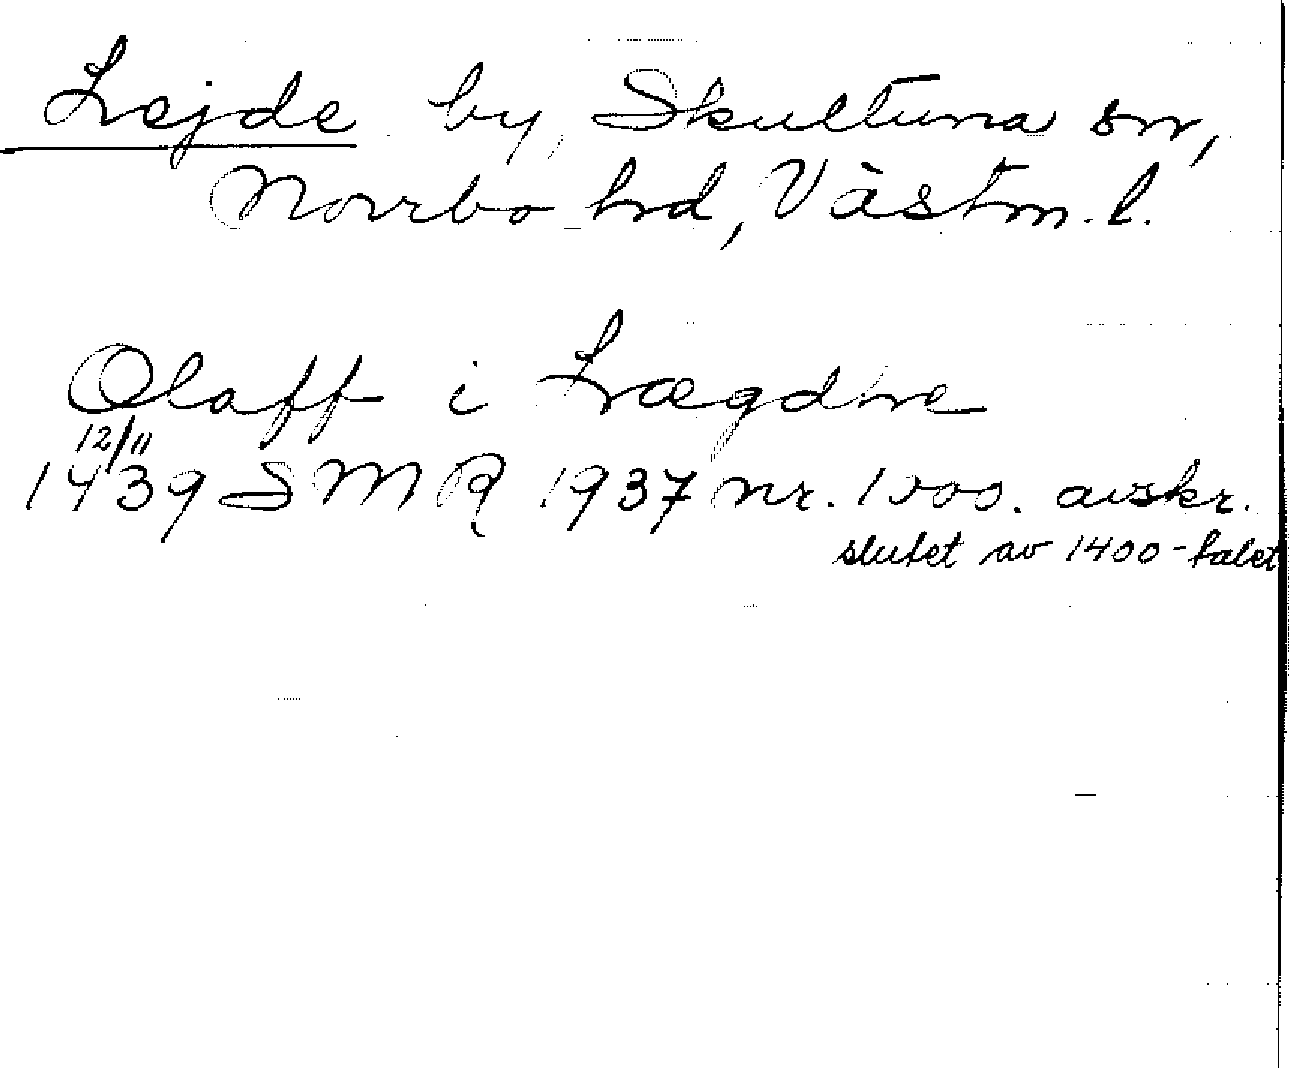 Lejde by, Skultuna sn,
Norrbo hd, Västm. l.
Olaff i Lægdhe
12/11
1439 SMR 1937 nr. 1000. avskr.
slutet av 1400-talet